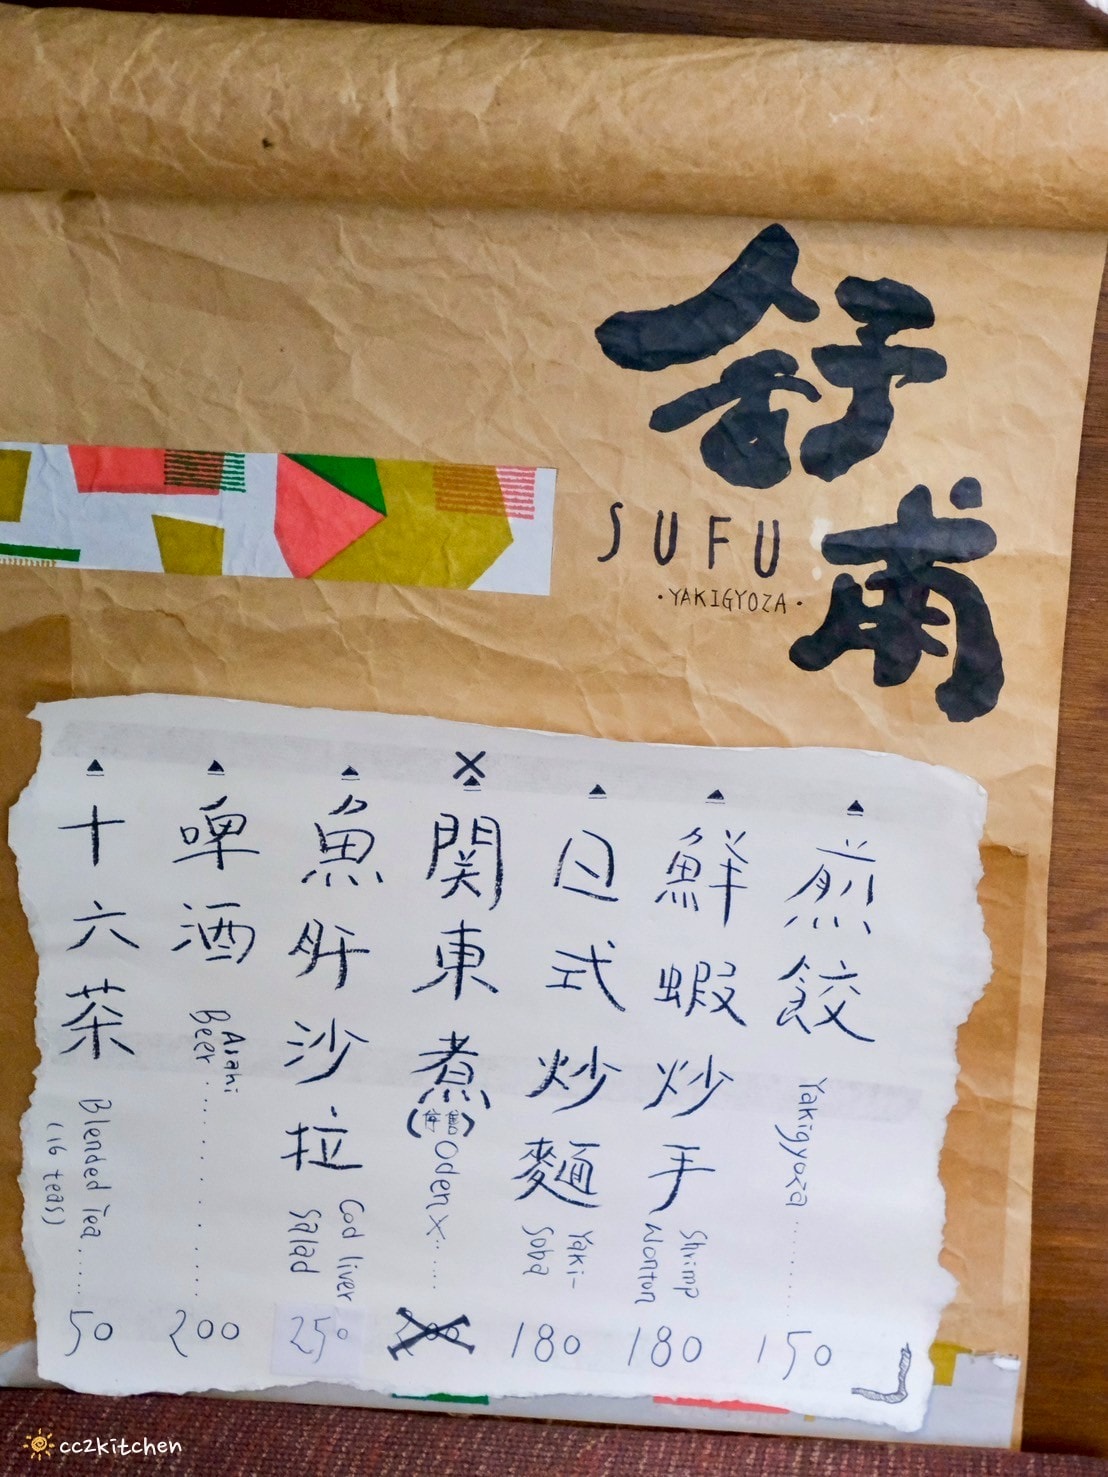 舒甫
SUFU
·YAKIGYOZA·
煎餃 Yakigyoza 150
鮮蝦炒手 Shrimp Wonton 180
日式炒麵 Yaki-Soba 180
関東煮 (停售) Oden X 200
魚肝沙拉 Cod liver Salad 250
啤酒 Asahi Beer 200
十六茶 Blended Tea (16 teas) 50
cc2kitchen